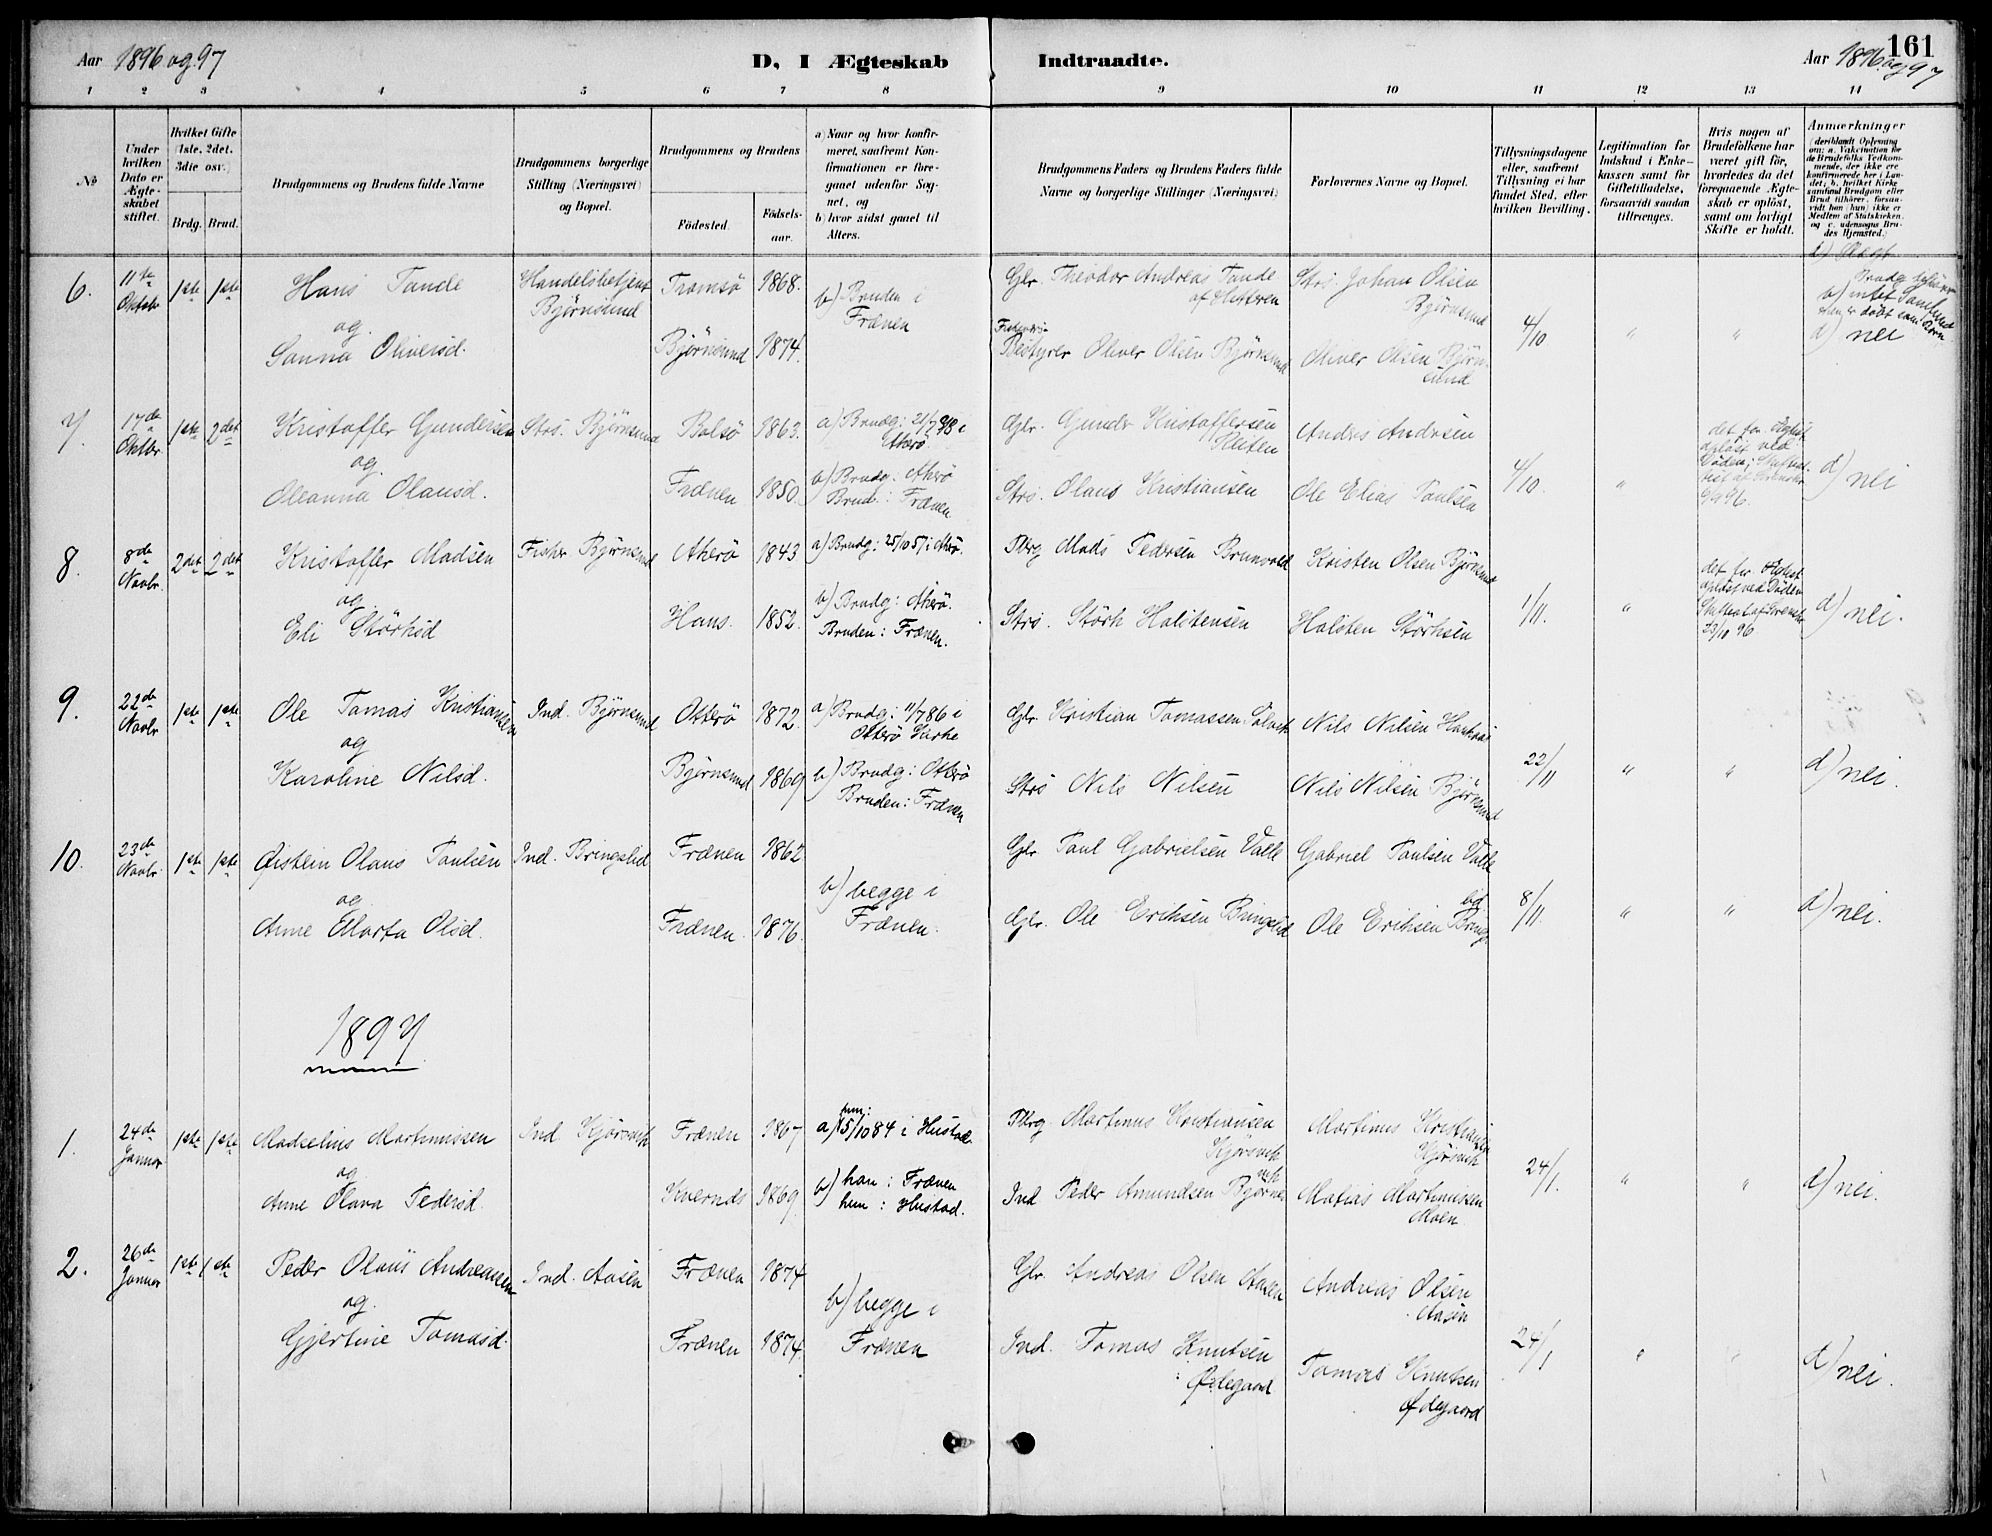 Aar 1896 og 97
D, I Ægteskab Indtraadte.
Aar 1896 og 97
161
1 2 3 4 5 6 7 8 9 10 11 12 13 14
No
Under hvilken Dato er Ægteskabet stiftet.
Hvilket Gifte (1ste, 2det, 3die osv.)
Brdg. Brud.
Brudgommens og Brudens fulde Navne
Brudgommens borgerlige Stilling (Næringsvei) og Bopæl.
Brudgommens og Brudens
Fødested. Fødselsaar.
a) Naar og hvor konfirmeret, saafremt Konfirmationen er foregaaet udenfor Sognet, og
b) hvor sidst gaaet til Alters.
Brudgommens Faders og Brudens Faders fulde Navne og borgerlige Stillinger (Næringsvei)
Forlovernes Navne og Bopæl.
Tillysningsdagene eller, saafremt Tillysning ei har fundet Sted, efter hvilken Bevilling.
Legitimation for Indskud i Enkekassen samt for Giftetilladelse, forsaavidt saadan tiltrænges.
Hvis nogen af Brudefolkene har været gift før, hvorledes da det foregaaende Ægteskab er opløst, samt om lovligt Skifte er holdt.
Anmærkninger (deriblandt Oplysning om: a. Vakcination for de Brudefolks Vedkommende, der ikke ere konfirmerede her i Landet, b. hvilket Kirkesamfund Brudgom eller Brud tilhører, forsaavidt han (hun) ikke er Medlem af Statskirken, og c. udensogns Brudes Hjemsted.)
6. 11te Oktbr 1ste 1ste Hans Tande Handelsbetjent Bjørnsund Tromsø 1868. b) Bruden i Frænen Glr. Theodor Andreas Tande af Hitteren Strs. Johan Olsen Bjørnsund
og
Sanna Oliversd. Bjørnsund 1874. Bestyrer Oliver Olsen Bjørnsund Oliver Olsen Bjørnsund 4/10 " " d) nei
7 17de Oktbr. 1ste 2det Kristoffer Gundersen Strs. Bjørnsund Bolsø 1863. a) Brudg: i Akerø Glr. Gunder Kristoffersen Anders Andersen
og
Oleanna Olausd. Frænen 1850. b) Brudg: Akerø Brud: Frænen Strs. Olaus Kristiansen Ole Elias Paulsen 4/10. " d) nei
8. 8de Novbr. 2det 2det Kristoffer Madsen Fisker Bjørnsund Akerø 1843 a) Brudg: 25/10 57 i Akerø. Pbrg Mads Pedersen Brunvold Kristen Olsen Bjørnsund
og
Eli Størksd Haus. 1852. b) Brudg: Akerø. Bruden: Frænen. Strs. Størk Halstensen Halsten Størksen 1/11. " 23/10 96 d) nei.
9. 22de Novbr 1ste 1ste Ole Tomas Kristiansen Ind. Bjørnsund Otterø 1872. a) Brudg: 11/7 86 i Otterø Kirke Glr. Kristian Tomassen Nils Nilsen
og
Karoline Nilsd. Bjørnsund 1869 b) Brudg: Otterø Bruden: Frænen Strs Nils Nilsen Nils Nilsen Bjørnsund 22/11 " " d) nei.
10. 23de Novbr. 1ste 1ste Øistein Olaus Paulsen Ind. Bringslid Frænen 1862 b) begge i Frænen. Glr. Paul Gabrielsen Valle Gabriel Paulsen Valle
og
Anne Marta Olsd. Frænen. 1876. Glr. Ole Eriksen Bringslid Ole Eriksen Bringslid 8/11. " " d) nei.
1897
1. 24de Januar 1ste 1ste Madselius Martinussen Ind Kjørsvik Frænen 1867 a) hun: 5/10 84 i Hustad Pbrg. Martinus Kristiansen Kjørsvik Martinus Kristiansen Kjørsvik
og
Anne Olava Pedersd. Kvernæs 1869. b) han: Frænen hun: Hustad. Ind Peder Amundsen Bjørnevik Matias Martinussen Moen 24/1. " " d) nei.
2. 26de Januar 1ste 1ste Peder Olaus Andreassen Ind. Aasen Frænen 1874 b) begge i Frænen Glr. Andreas Olsen Aasen Andreas Olsen Aasen
og
Gjertine Tomasd. Frænen 1874. Ind. Tomas Knutsen Ødegaard Tomas Knutsen Ødegaard 24/1 " " d) nei.